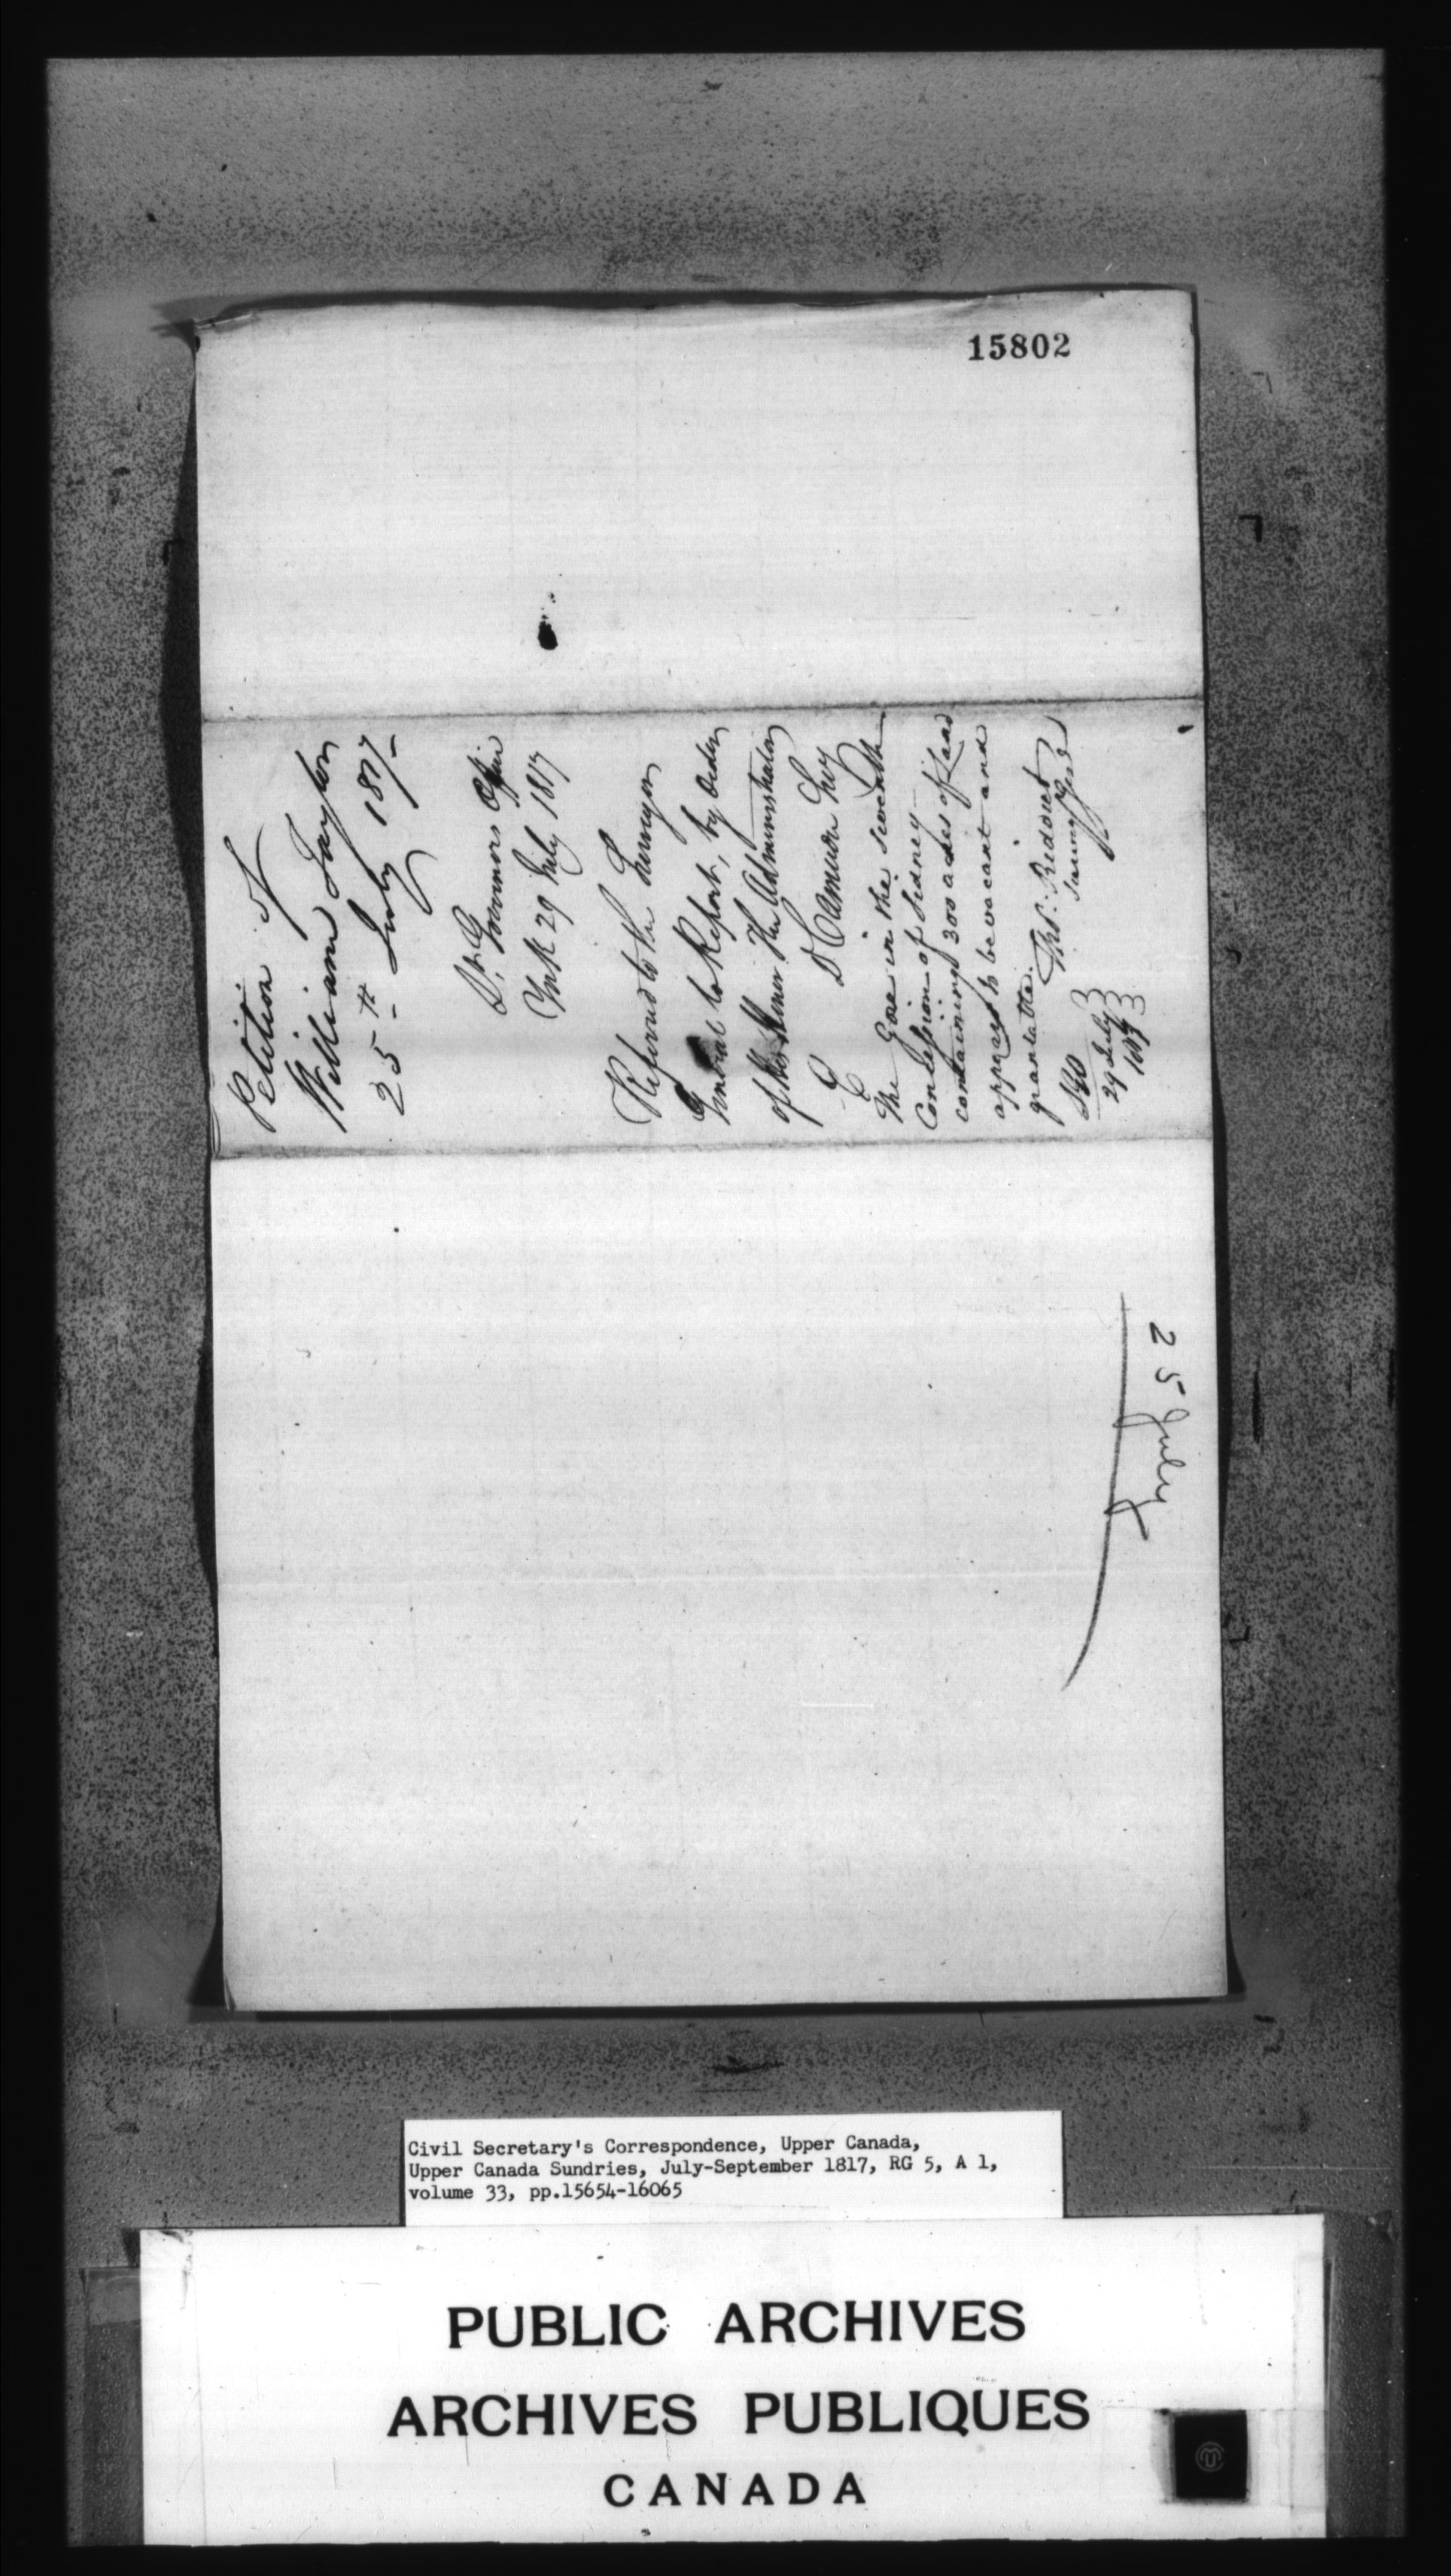 15802
Petition of
William Taylor
25th July 1817
Lt. Governors Office
York 29 July 1817
Referred to the Surveyor
General to Report, by Order
of His Honor The Administrator
D Cameron Secy
The Gore in the seventh
Concession of Sidney
containing 300 acres of Land
appears to be vacant and
grantable.
Thos: Ridout
Survr Genl
SGO
29 July
1817
25 July
Civil Secretary's Correspondence, Upper Canada,
Upper Canada Sundries, July-September 1817, RG 5, A 1,
volume 33, pp.15654-16065
PUBLIC ARCHIVES
ARCHIVES PUBLIQUES
CANADA